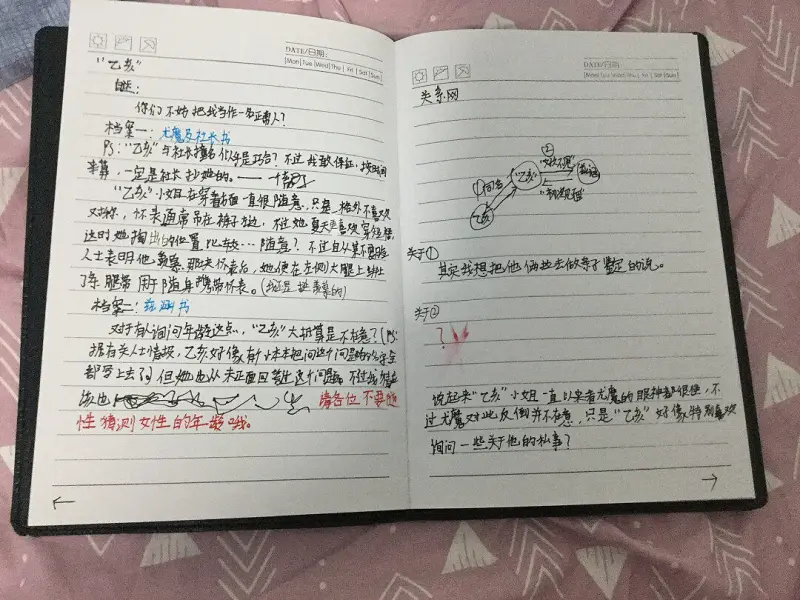 DATE/日期:
Mon Tue Wed Thu Fri Sat Sun
"乙亥"
自述:
你们不妨把我当作一名正常人?
档案一:尤魔及社长书
PS:"乙亥"与社长撞名似乎是巧合?不过我敢保证,按时间
来算,一定是社长抄她的。——
"乙亥"小姐在穿着方面一直很随意,只是格外不喜欢
对称,怀表通常吊在裤子左边,不过她夏天更喜欢穿短裙,
这时她掏出的位置比较…随意?不过自从某不愿
人士表明他莫察那块怀表后,她便在左侧大腿上绑上
了条腿带用于随身携带怀表。(我还是挺羡慕的)
档案二:书
对于有人询问年龄这点,"乙亥"大抵算是不在意?(PS:
据有关人士情报,乙亥好像有小本本把问这个问题的全
都写上去了)但她也从未正面回答过这个问题,不过我猜
该也
请各位不要随
性猜测女性的年龄哦。
←
DATE/日期:
Mon Tue Wed Thu Fri Sat Sun
关系网
①同名
"乙亥"
乙亥
②
关于①
其实我想把他俩拉去做亲子鉴定的说。
关于②
?
说起来"乙亥"小姐一直以来看尤魔的眼神都很怪,不
过尤魔对此反倒并不在意,只是"乙亥"好像特别喜欢
询问一些关于他的私事?
→